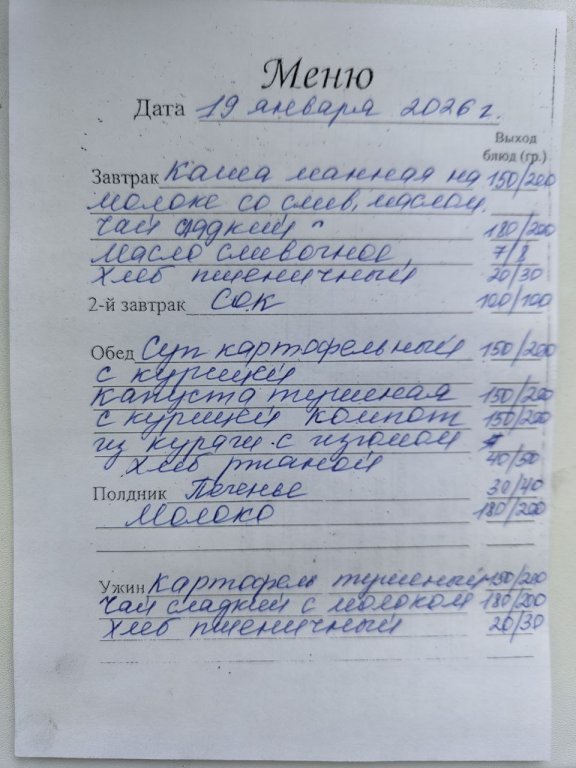 Меню
Дата 19 января 2026 г.
Выход
блюд (гр.)
Завтрак Каша манная на 150/200
молоке со слив. маслом.
Чай сладкий 180/200
Масло сливочное 7/8
Хлеб пшеничный 20/30
2-й завтрак Сок 100/100
Обед Суп картофельный 150/200
с курицей
Капуста тушеная 150/200
с курицей компот 150/200
из кураги с изюмом
Хлеб ржаной 40/50
Полдник Печенье 30/40
Молоко 180/200
Ужин Картофель тушеный 150/200
Чай сладкий с молоком 180/200
Хлеб пшеничный 20/30